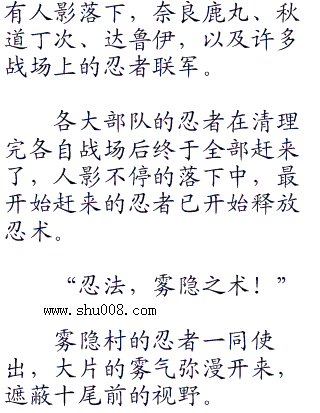 有人影落下，奈良鹿丸、秋
道丁次、达鲁伊，以及许多
战场上的忍者联军。
各大部队的忍者在清理
完各自战场后终于全部赶来
了，人影不停的落下中，最
开始赶来的忍者已开始释放
忍术。
“忍法，雾隐之术！”
www.shu008.com
雾隐村的忍者一同使
出，大片的雾气弥漫开来，
遮蔽十尾前的视野。